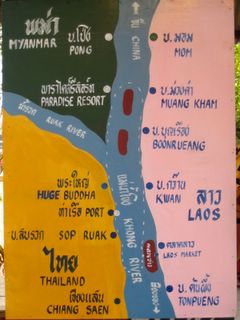 พม่า
MYANMAR
บ.โป่ง
PONG
จีน
CHINA
บ.มอม
MOM
พาราไดซ์รีสอร์ท
PARADISE RESORT
บ.ม่วงคำ
MUANG KHAM
น้ำรวก RUAK RIVER
บ.บุญเรือง
BOONRUEANG
พระใหญ่
HUGE BUDDHA
ท่าเรือ PORT
แม่น้ำโขง KHONG RIVER
บ.กว๊าน
KWAN
ลาว
LAOS
บ.สบรวก SOP RUAK
ตลาดลาว
LAOS MARKET
ไทย
THAILAND
เชียงแสน
CHIANG SAEN
บ.ต้นผึ้ง
TONPUENG